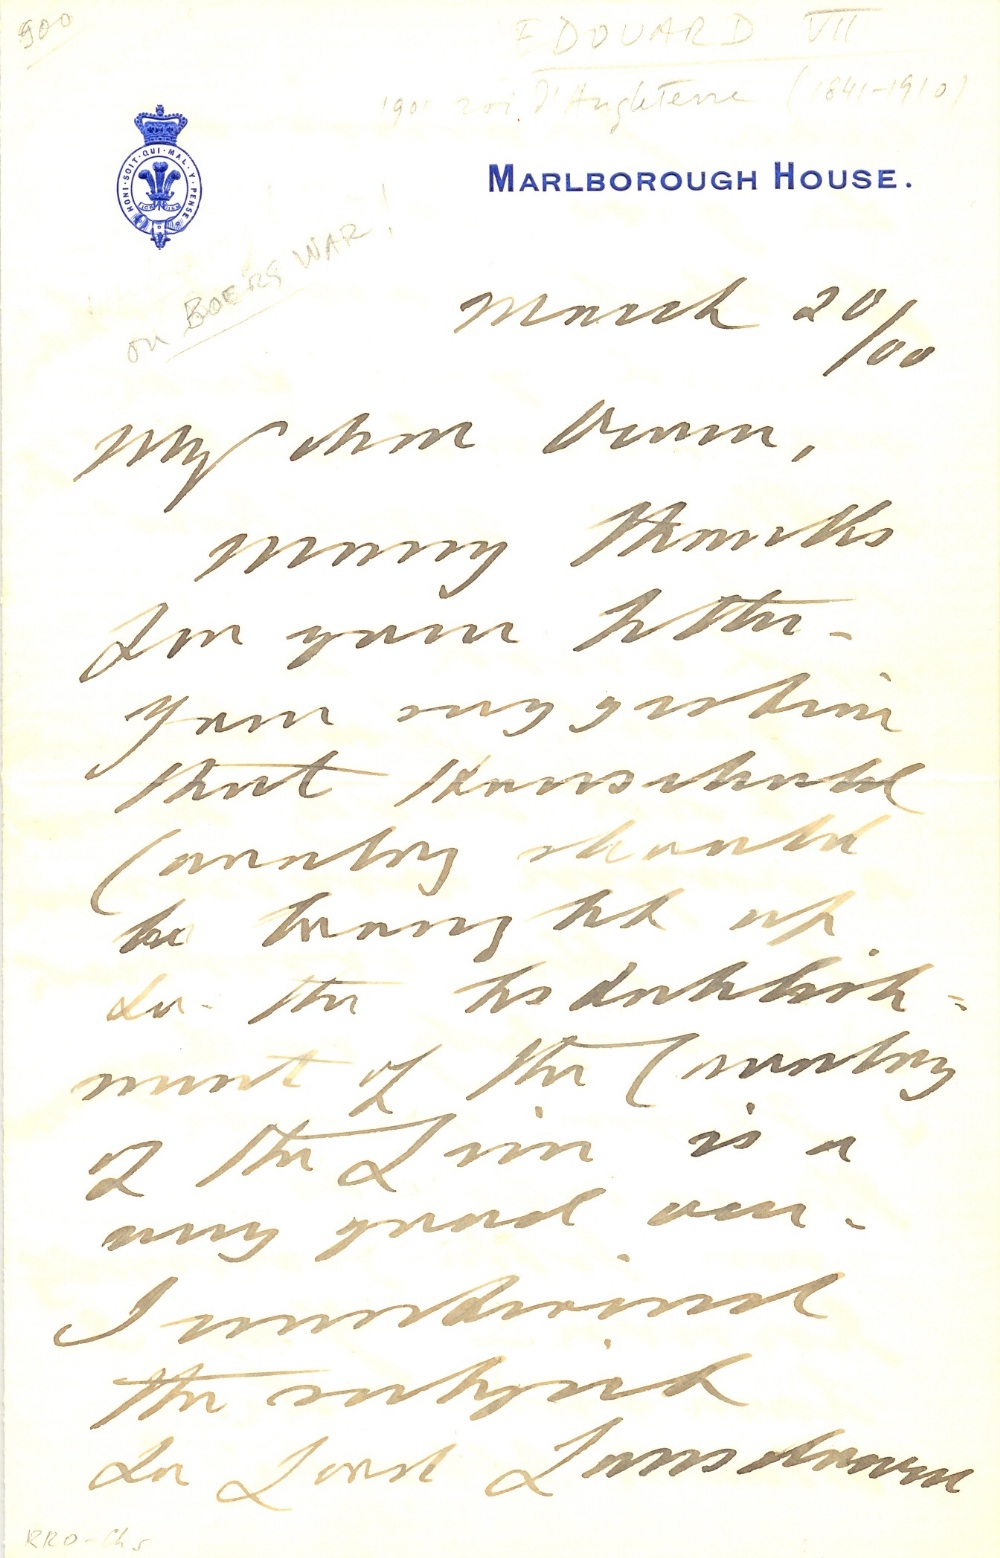 900
EDOUARD VII
1901 roi d'Angleterre (1841-1910)
HONI·SOIT·QUI·MAL·Y·PENSE
MARLBOROUGH HOUSE.
on BOERS WAR!
March 20/00
My dear
Many thanks
for your letter -
Your suggestion
that Household
Cavalry should
be brought up
to the establish=
ment of the Cavalry
of the Line is a
very good one.
I mentioned
the subject
to Lord Lansdowne